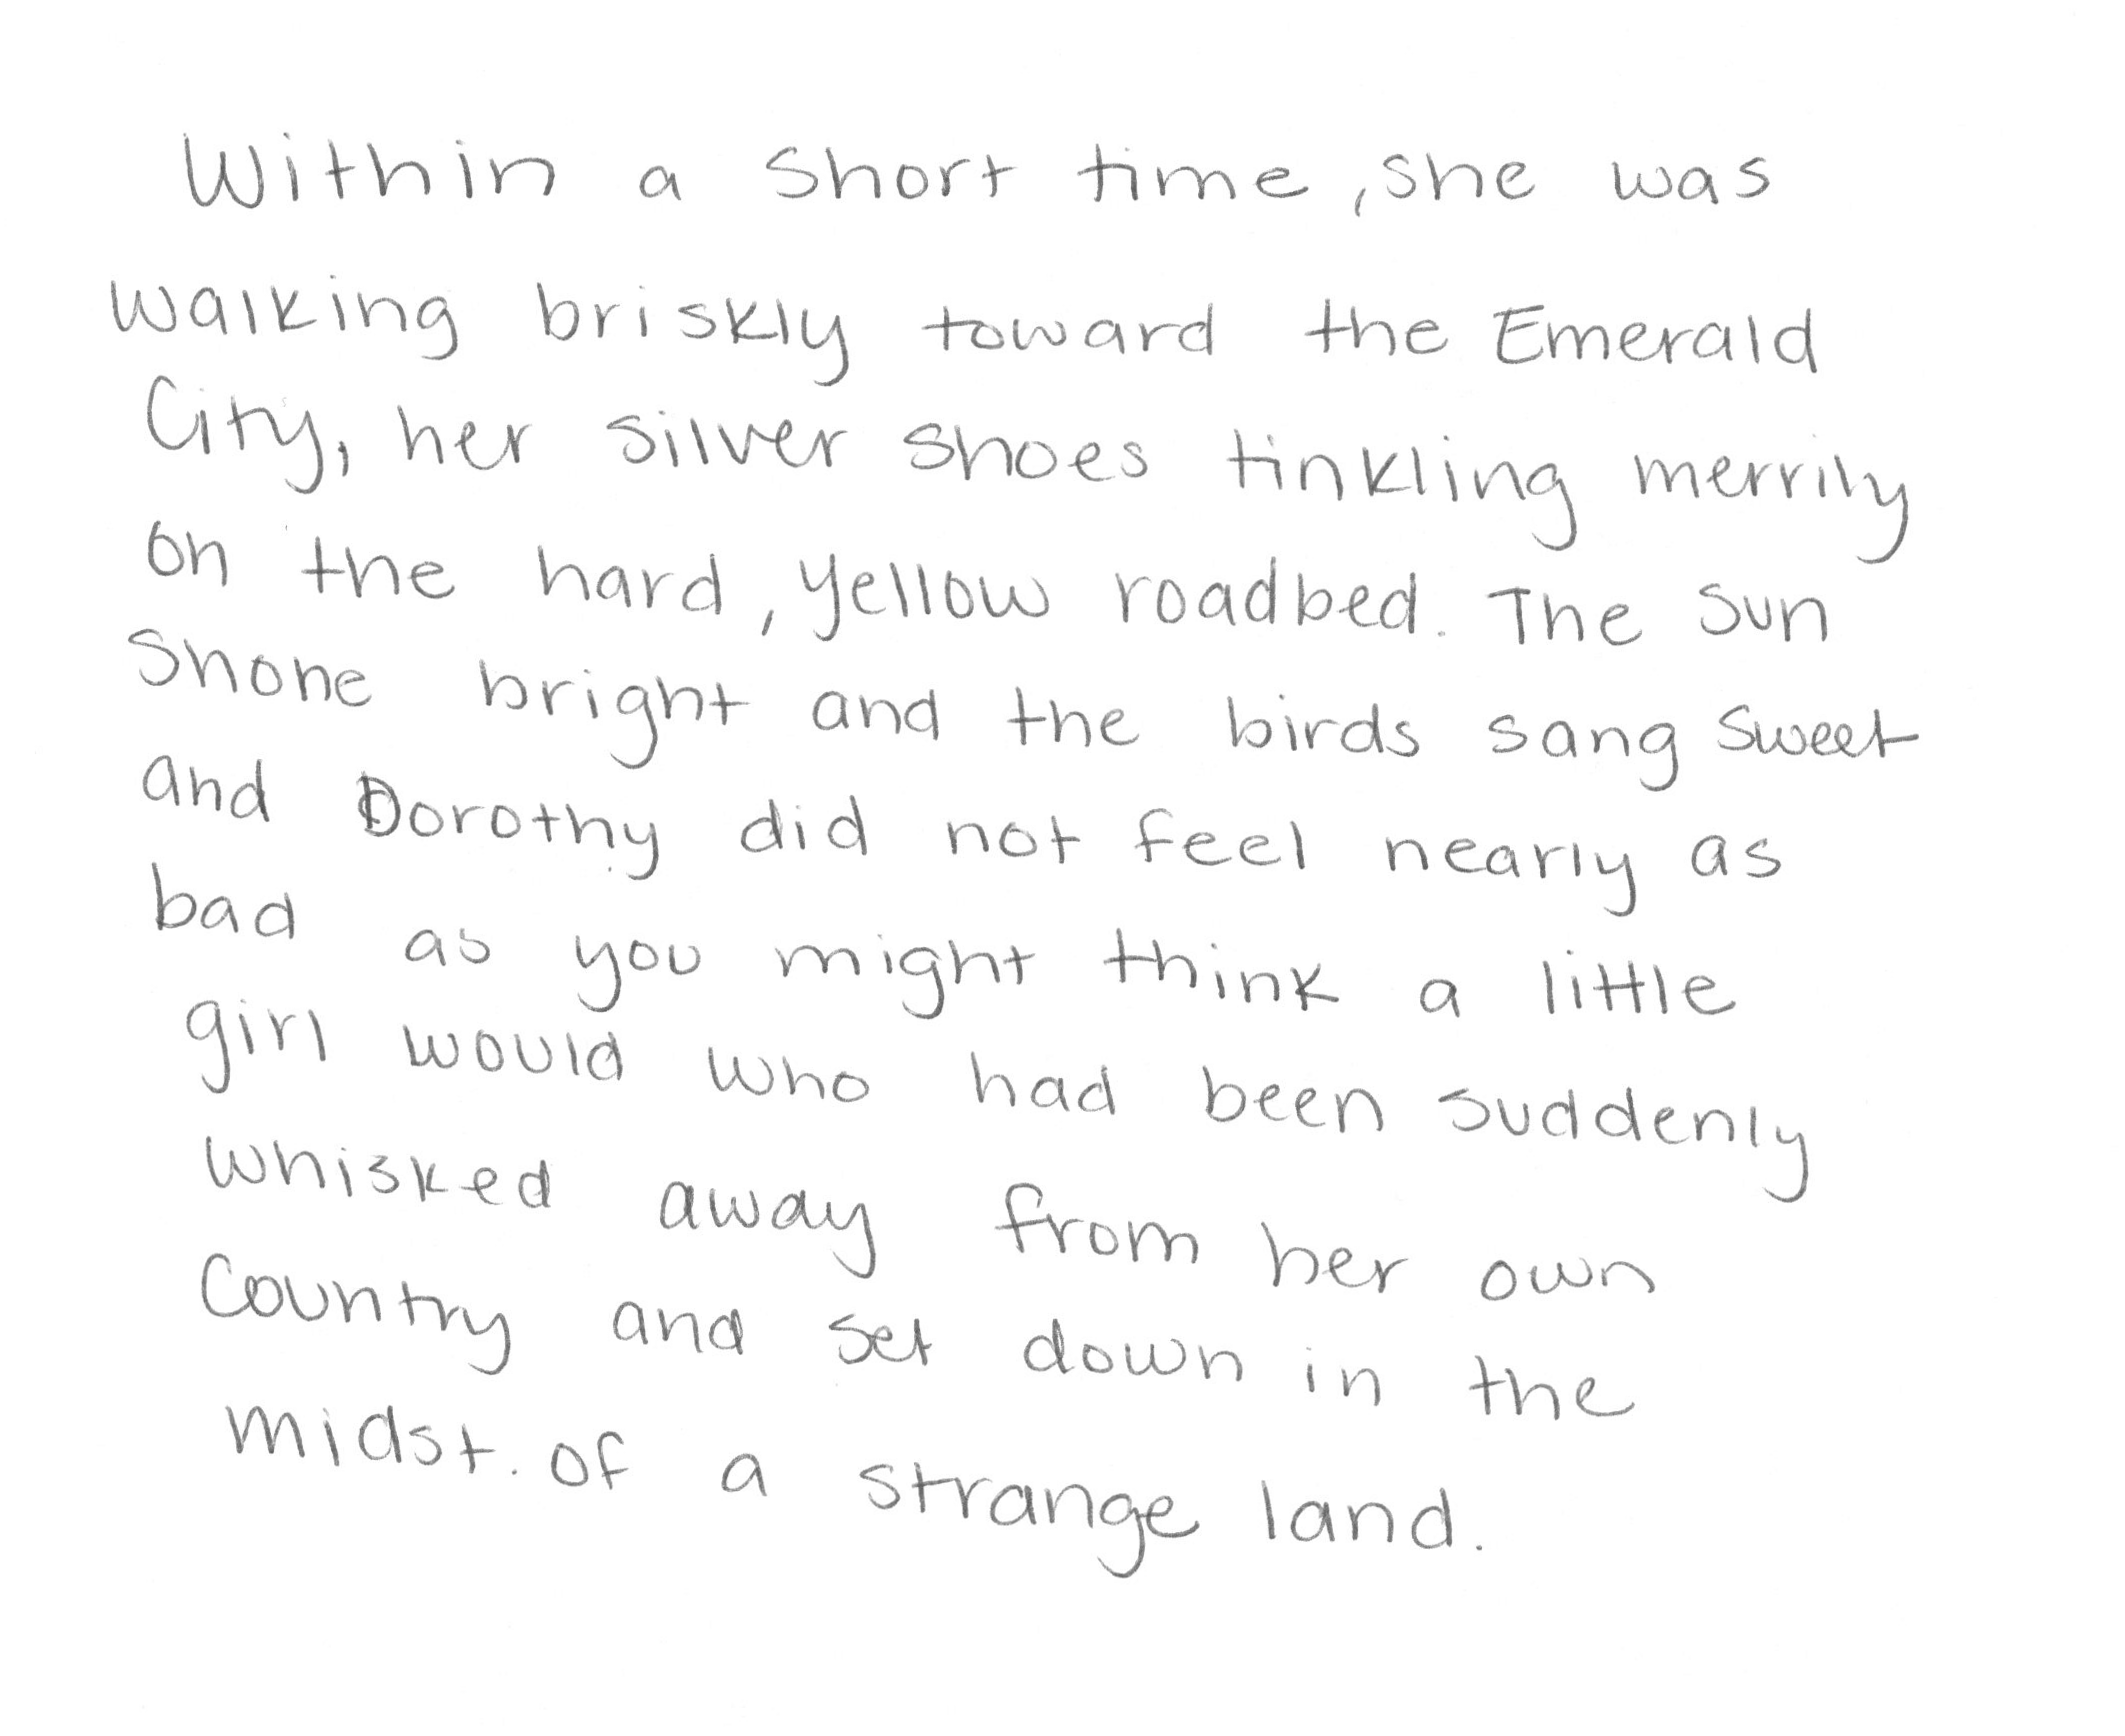 Within a short time, she was
walking briskly toward the Emerald
City, her silver shoes tinkling merrily
on the hard, yellow roadbed. The sun
shone bright and the birds sang sweet
and Dorothy did not feel nearly as
bad as you might think a little
girl would who had been suddenly
whisked away from her own
country and set down in the
midst. of a strange land.